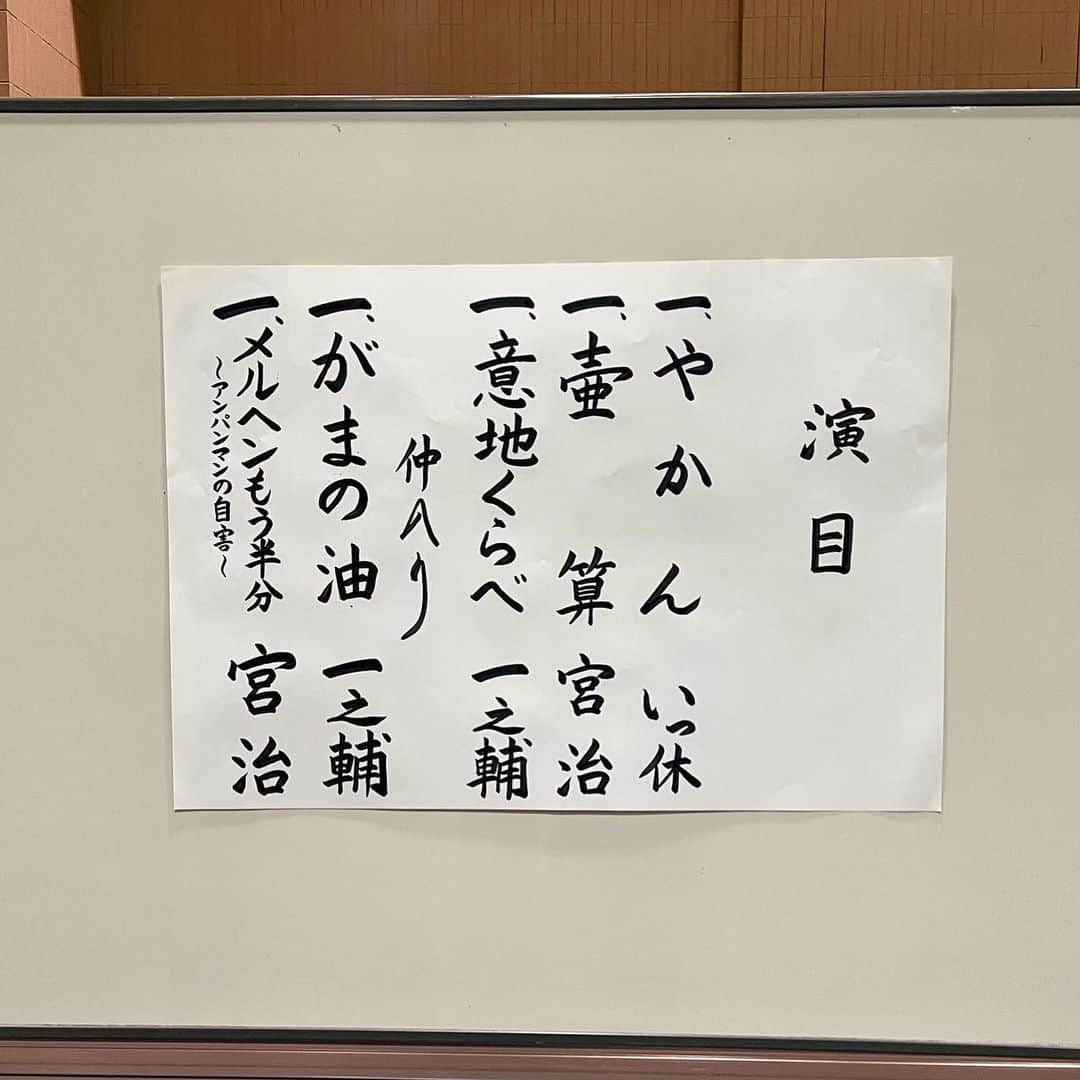 演目
一、やかん いっ休
一、壷算 宮治
一、意地くらべ 一之輔
仲入り
一、がまの油 一之輔
一、メルヘンもう半分 宮治
～アンパンマンの自害～